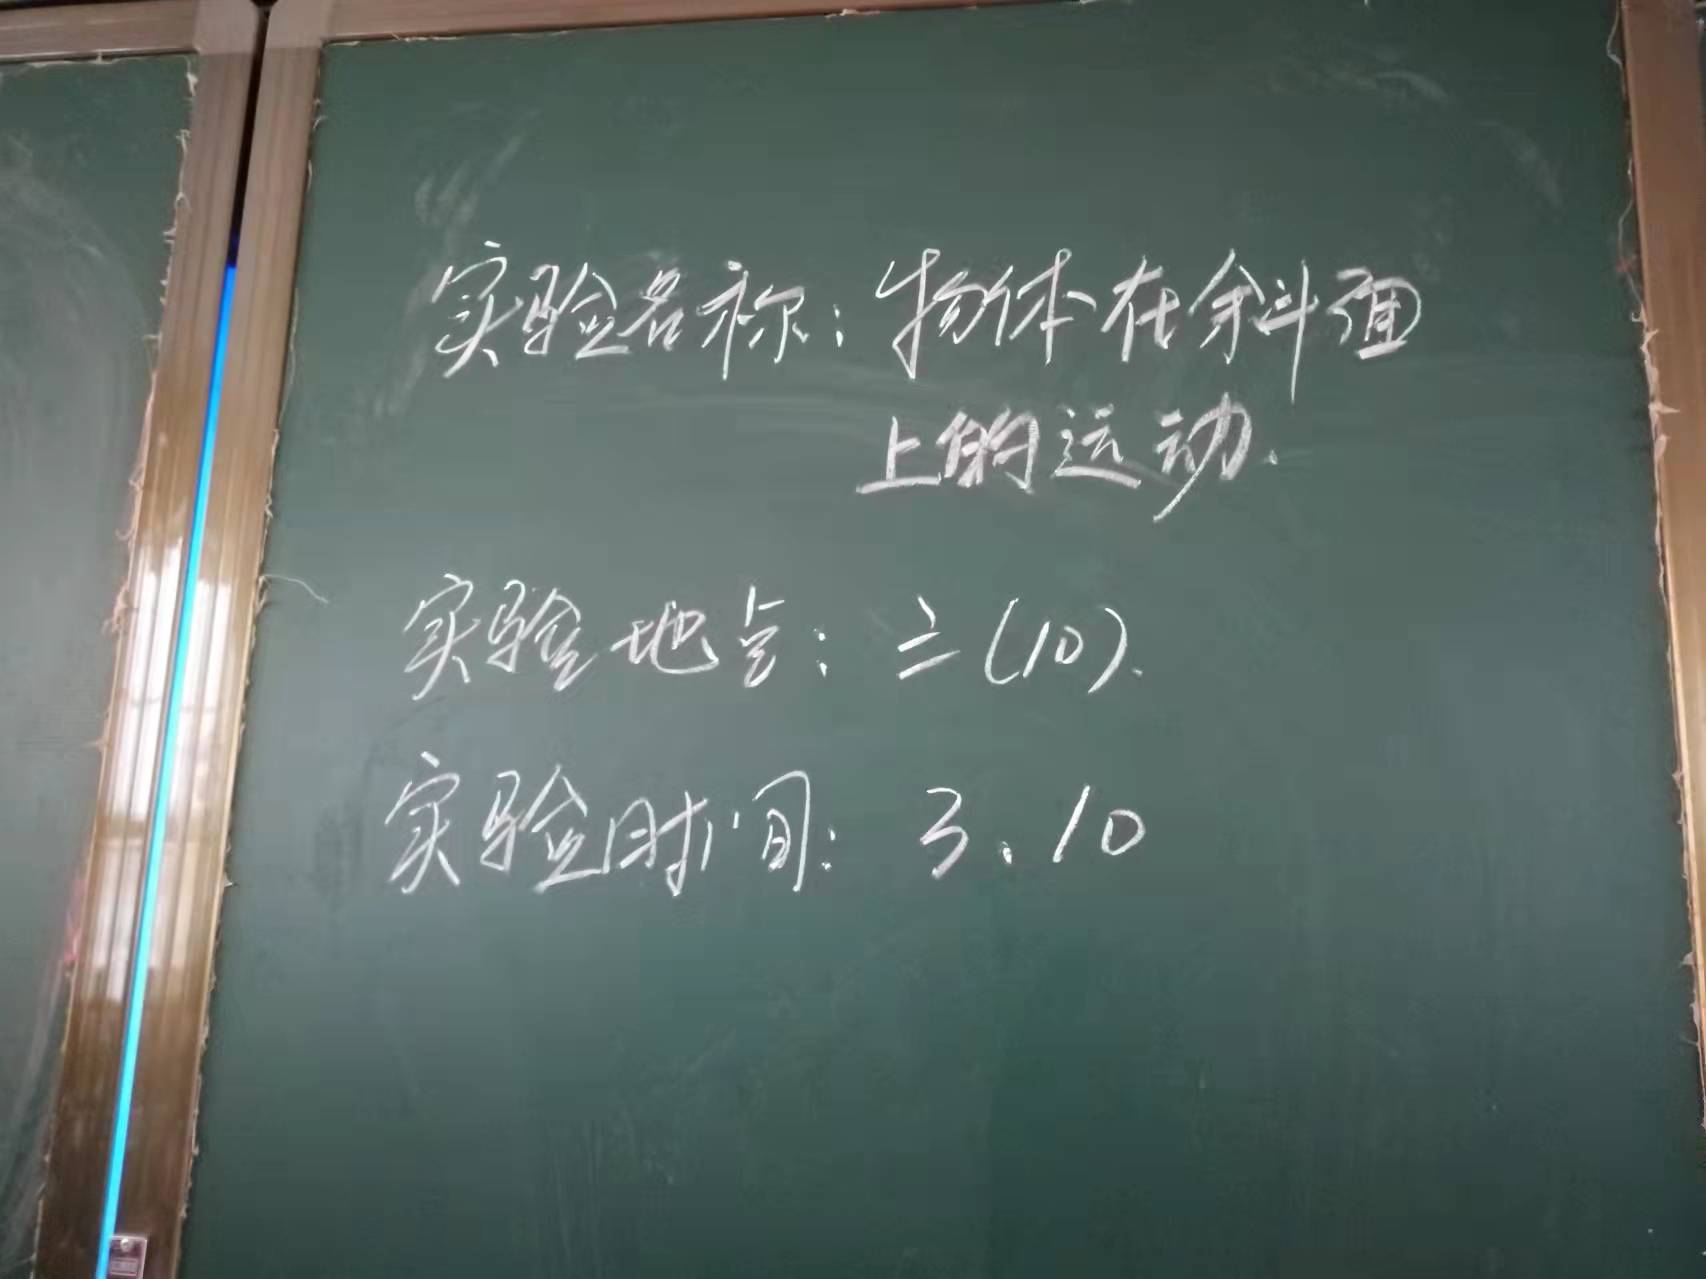 实验名称：物体在斜面
上的运动.
实验地点：三(10).
实验时间：3、10